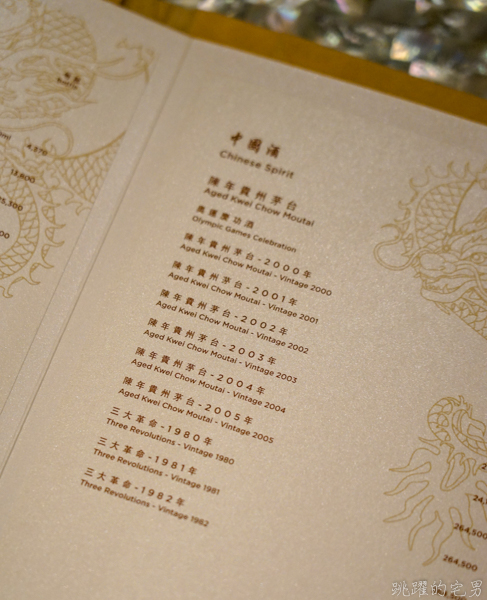 4,270
13,800
中國酒
Chinese Spirit
陳年貴州茅台
Aged Kwei Chow Moutai
奧運慶功酒
Olympic Games Celebration
陳年貴州茅台-2000年
Aged Kwei Chow Moutai - Vintage 2000
陳年貴州茅台-2001年
Aged Kwei Chow Moutai - Vintage 2001
陳年貴州茅台-2002年
Aged Kwei Chow Moutai - Vintage 2002
陳年貴州茅台-2003年
Aged Kwei Chow Moutai - Vintage 2003
陳年貴州茅台-2004年
Aged Kwei Chow Moutai - Vintage 2004
陳年貴州茅台-2005年
Aged Kwei Chow Moutai - Vintage 2005
三大革命-1980年
Three Revolutions - Vintage 1980
三大革命-1981年
Three Revolutions - Vintage 1981
三大革命-1982年
Three Revolutions - Vintage 1982
264,500
264,500
跳躍的宅男